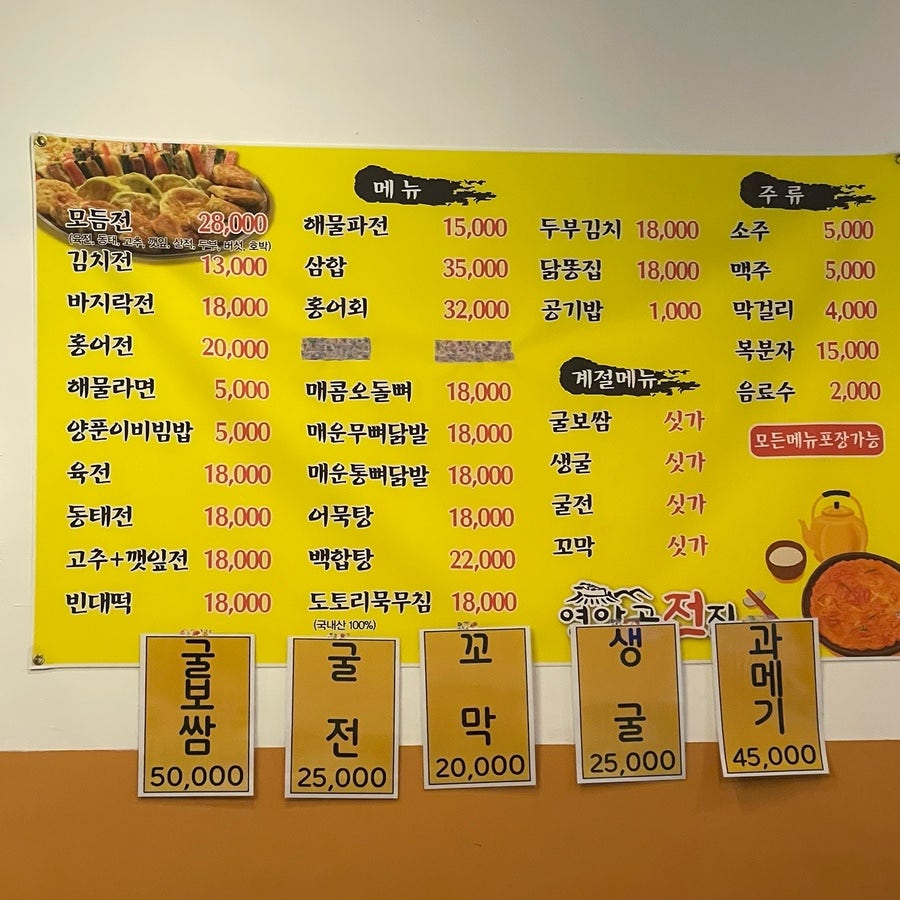 모듬전 28,000
(육전, 동태, 고추, 깻잎, 산적, 두부, 버섯, 호박)
김치전 13,000
바지락전 18,000
홍어전 20,000
해물라면 5,000
양푼이비빔밥 5,000
육전 18,000
동태전 18,000
고추+깻잎전 18,000
빈대떡 18,000
메뉴
해물파전 15,000
삼합 35,000
홍어회 32,000
매콤오돌뼈 18,000
매운무뼈닭발 18,000
매운통뼈닭발 18,000
어묵탕 18,000
백합탕 22,000
도토리묵무침 18,000
(국내산 100%)
두부김치 18,000
닭똥집 18,000
공기밥 1,000
계절메뉴
굴보쌈 싯가
생굴 싯가
굴전 싯가
꼬막 싯가
주류
소주 5,000
맥주 5,000
막걸리 4,000
복분자 15,000
음료수 2,000
모든메뉴포장가능
굴보쌈
50,000
굴전
25,000
꼬막
20,000
생굴
25,000
과메기
45,000